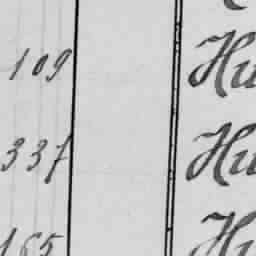 109 Hu
337 Hu
165 Hu